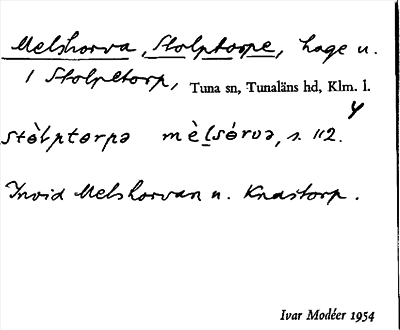 Melshorva, Stolptorpe, hage u.
1 Stolpetorp, Tuna sn, Tunaläns hd, Klm. l.
4
stòlptɵrpə mèlsɵ́rvə, s. 112.
Invid Melshorvan u. Knastorp.
Ivar Modéer 1954